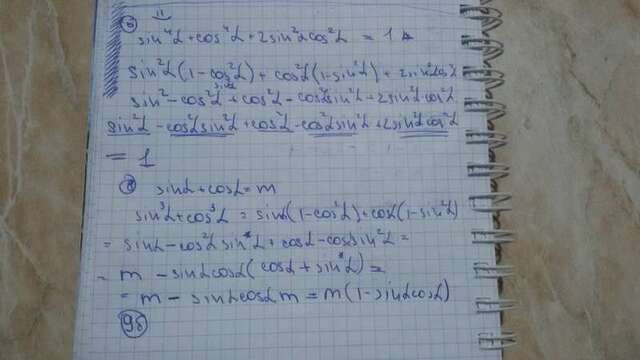 ⑥ sin⁴α + cos⁴α + 2sin²αcos²α = 1
sin²α(1-cos²α) + cos²α(1-sin²α) + 2sin²αcos²α
sin²α - cos²α sin²α + cos²α - cos²α sin²α + 2sin²α cos²α
= 1
⑧ sinα + cosα = m
sin³α + cos³α = sinα(1-cos²α) + cosα(1-sin²α)
= sinα - cos²α sinα + cosα - cosα sin²α =
= m - sinα cosα (cosα + sinα) =
= m - sinα cosα m = m(1 - sinα cosα)